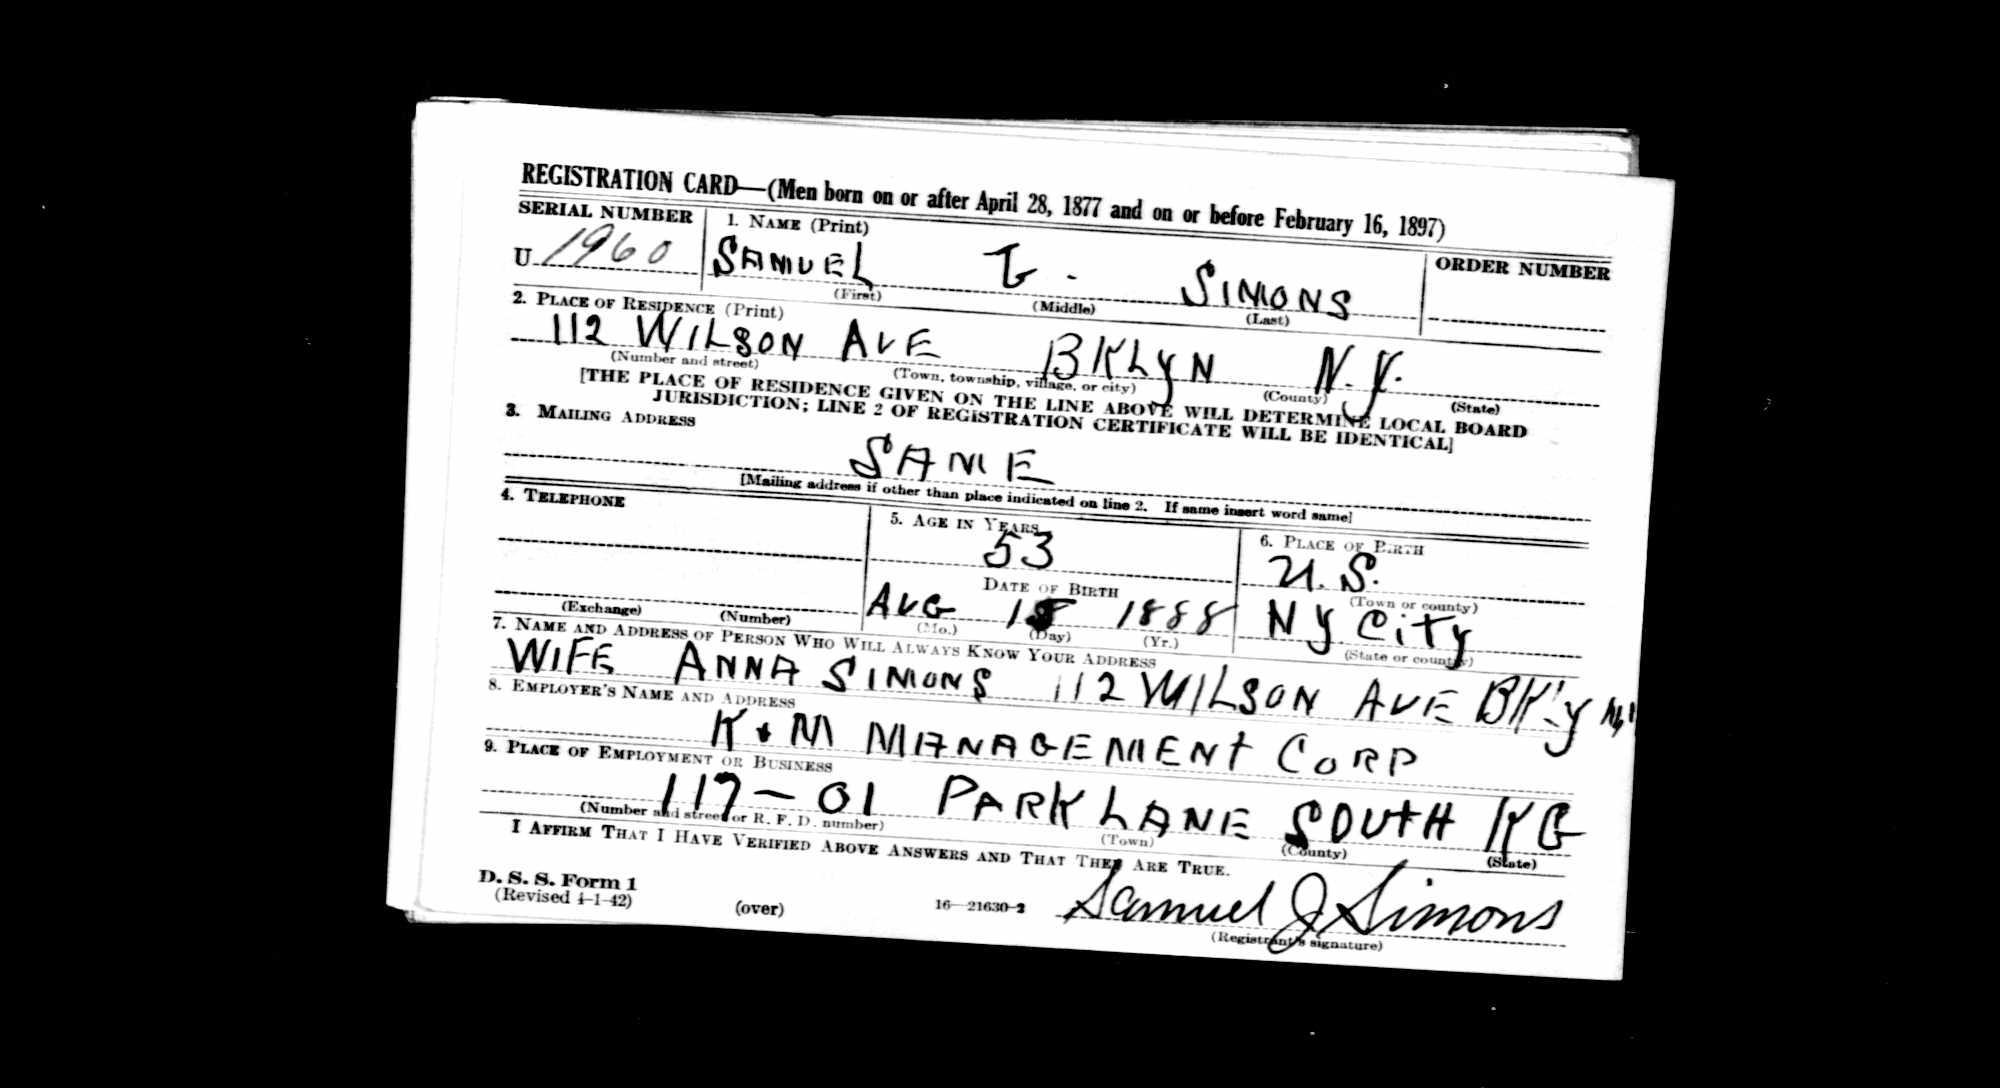 REGISTRATION CARD—(Men born on or after April 28, 1877 and on or before February 16, 1897)
SERIAL NUMBER
1. NAME (Print)
ORDER NUMBER
U 1960
SAMUEL J. SIMONS
(First) (Middle) (Last)
2. PLACE OF RESIDENCE (Print)
112 WILSON AVE BKLYN N.Y.
(Number and street) (Town, township, village, or city) (County) (State)
[THE PLACE OF RESIDENCE GIVEN ON THE LINE ABOVE WILL DETERMINE LOCAL BOARD
JURISDICTION; LINE 2 OF REGISTRATION CERTIFICATE WILL BE IDENTICAL]
3. MAILING ADDRESS
SAME
[Mailing address if other than place indicated on line 2. If same insert word same]
4. TELEPHONE
(Exchange) (Number)
5. AGE IN YEARS
53
DATE OF BIRTH
AUG 1888
(Mo.) (Day) (Yr.)
6. PLACE OF BIRTH
U.S.
(Town or county)
NY CITY
(State or country)
7. NAME AND ADDRESS OF PERSON WHO WILL ALWAYS KNOW YOUR ADDRESS
WIFE ANNA SIMONS 112 WILSON AVE BKLY
8. EMPLOYER'S NAME AND ADDRESS
K + M MANAGEMENT CORP
9. PLACE OF EMPLOYMENT OR BUSINESS
117-01 PARK LANE SOUTH KG
(Number and street or R. F. D. number) (Town) (County) (State)
I AFFIRM THAT I HAVE VERIFIED ABOVE ANSWERS AND THAT THEY ARE TRUE.
D. S. S. Form 1
(Revised 4-1-42)
(over)
16—21630-2
Samuel J Simons
(Registrant's signature)